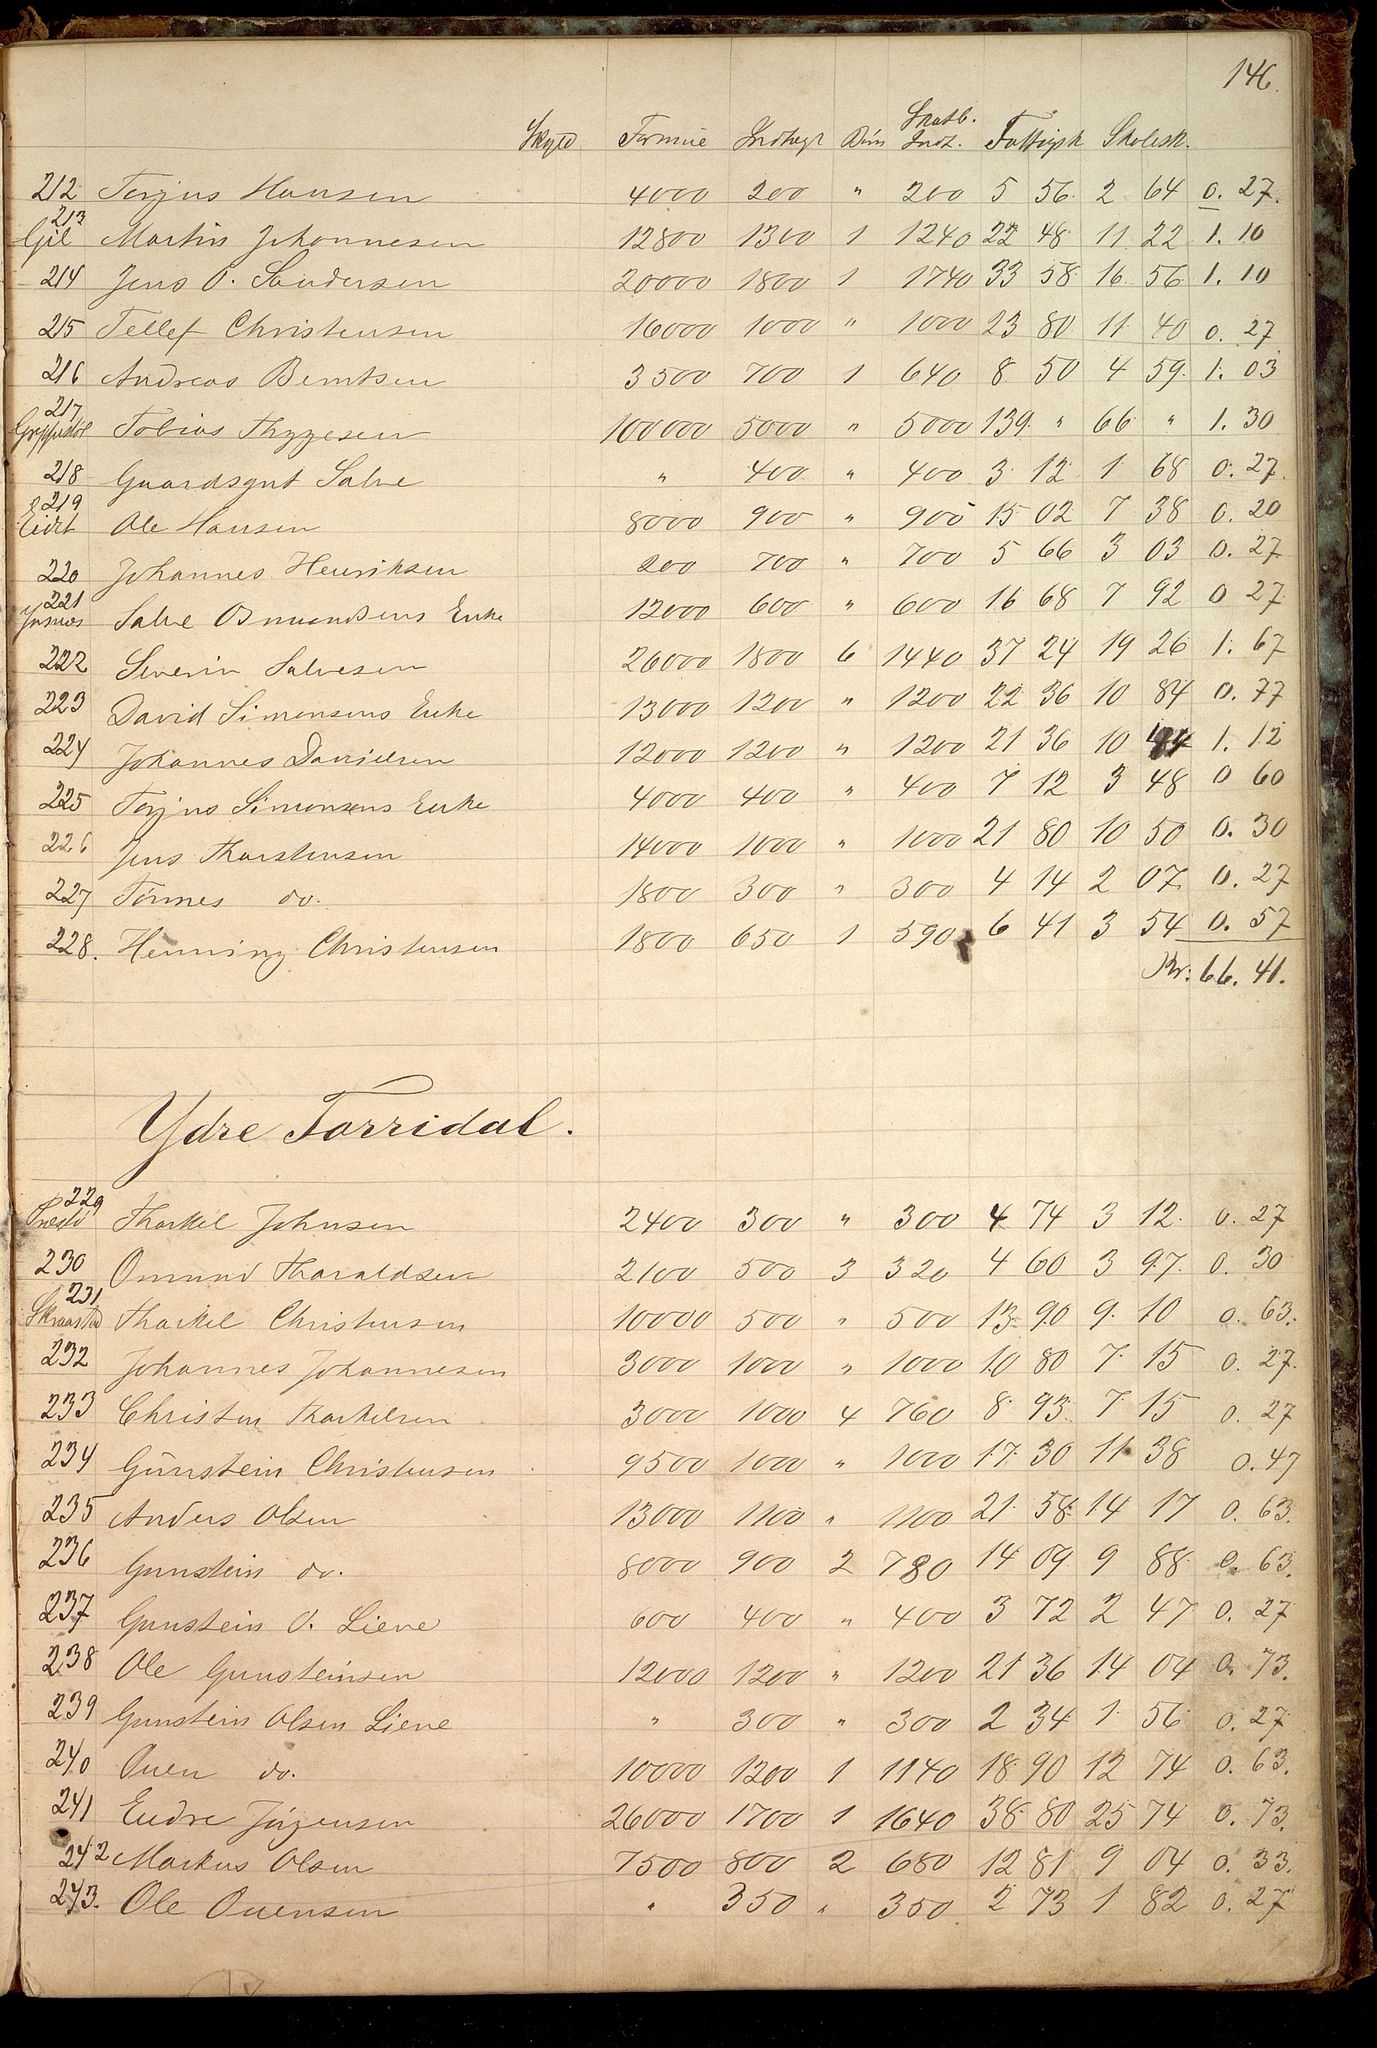 146.
Skyld Formue Indtægt Börn Skatb. Indt. Fattigsk Skolesk.
212 Terjus Hansen 4000 200 " 200 5 56 2 64 0. 27.
213 Gil Martin Johannesen 12800 1300 1 1240 22 48 11 22 1. 10
214 Jens O. Sandersen 20000 1800 1 1740 33 58 16 56 1. 10
215 Tellef Christensen 16000 1000 " 1000 23 80 11 40 0. 27
216 Andreas Berntsen 3500 700 1 640 8 50 4 59 1. 03
217 Tobias Thygesen 100000 5000 " 5000 139 " 66 " 1. 30
218 Gaardsgut Salve " 400 " 400 3 12 1 68 0. 27.
219 Eidet Ole Hansen 8000 900 " 900 15 02 7 38 0. 20
220 Johannes Henriksen 200 700 " 700 5 66 3 03 0. 27
221 Salve Osmundsens Enke 12000 600 " 600 16 68 7 92 0 27
222 Severin Salvesen 26000 1800 6 1440 37 24 19 26 1. 67
223 David Simonsens Enke 13000 1200 " 1200 22 36 10 84 0. 77
224 Johannes Danielsen 12000 1200 " 1200 21 36 10 44 1. 12
225 Terjus Simonsens Enke 4000 400 " 400 7 12 3 48 0 60
226 Jens Thorstensen 14000 1000 " 1000 21 80 10 50 0. 30
227 Tönnes do. 1800 300 " 300 4 14 2 07 0. 27
228. Henning Christensen 1800 650 1 590 6 41 3 54 0. 57
Kr: 66. 41.
Ydre Torridal.
229 Thorkel Johnsen 2400 300 " 300 4 74 3 12 0. 27
230 Omund Tharaldsen 2100 500 3 320 4 60 3 97 0. 30
231 Skraastad Thorkel Christensen 10000 500 " 500 13 90 9 10 0. 63.
232 Johannes Johannesen 3000 1000 " 1000 10 80 7 15 0. 27.
233 Christen Thorkelsen 3000 1000 4 760 8 93 7 15 0. 27
234 Günstein Christensen 9500 1000 " 1000 17 30 11 38 0. 47
235 Anders Olsen 13000 1100 " 1100 21 58 14 17 0. 63.
236 Gunstein do. 8000 900 2 780 14 09 9 88 0. 63.
237 Gunstein O. Lieve 600 400 " 400 3 72 2 47 0. 27
238 Ole Gunsteinsen 12000 1200 " 1200 21 36 14 04 0. 73.
239 Gunstein Olsen Lieve " 300 " 300 2 34 1 56 0. 27
240 Ouen do. 10000 1200 1 1140 18 90 12 74 0. 63.
241 Endre Jörgensen 26000 1700 1 1640 38 80 25 74 0. 73.
242 Markus Olsen 7500 800 2 680 12 81 9 04 0. 33.
243. Ole Ouensen " 350 " 350 2 73 1 82 0. 27